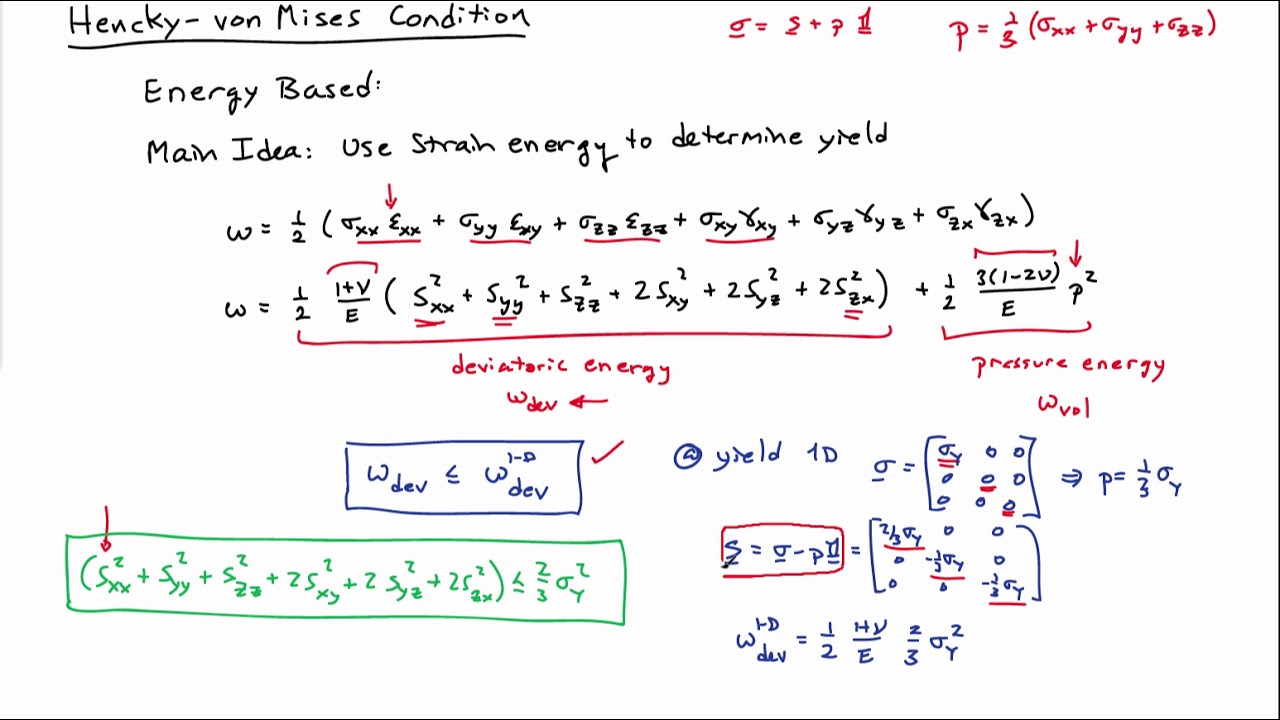 Hencky-von Mises Condition
σ = S + p 𝟙
p = 1/3 (σxx + σyy + σzz)
Energy Based:
Main Idea: Use Strain energy to determine yield
ω = 1/2 (σxx εxx + σyy εxy + σzz εzz + σxy γxy + σyz γyz + σzx γzx)
ω = 1/2 (1+ν)/E (Sxx² + Syy² + Szz² + 2Sxy² + 2Syz² + 2Szx²) + 1/2 3(1-2ν)/E p²
deviatoric energy
pressure energy
ωdev ←
ωvol
ωdev ≤ ωdev^1-D ✓
@ yield 1D
σ = [σY 0 0
0 0 0
0 0 0] ⇒ p = 1/3 σY
S = σ - p𝟙 = [2/3σY 0 0
0 -1/3σY 0
0 0 -1/3σY]
(Sxx² + Syy² + Szz² + 2Sxy² + 2Syz² + 2Szx²) ≤ 2/3 σY²
ωdev^1-D = 1/2 (1+ν)/E 2/3 σY²